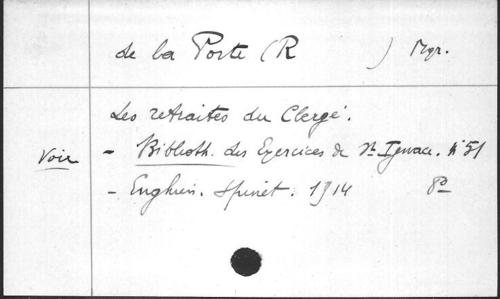 de la Porte (R ) Mgr.
Les retraites du Clergé.
Voir - Biblioth. des Exercices de St Ignace. N° 51
- Enghien. Spinet. 1914 8°